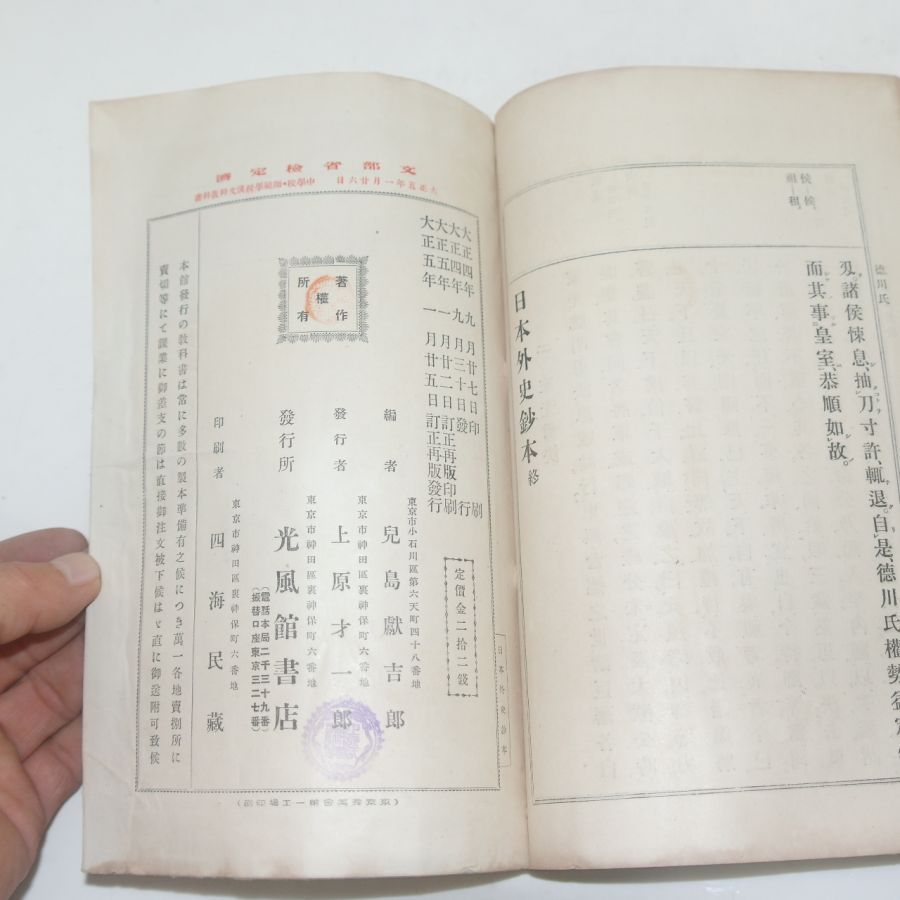 侯—候、
祖—租、
德川氏
及諸侯悚息、抽刀寸許、輒退、自是、德川氏權勢益定、
而其事皇室、恭順如故。
日本外史鈔本 終
文部省檢定濟
大正五年一月廿六日 中學校・師範學校漢文科敎科書
大正四年九月廿七日印刷
大正四年九月三十日發行
大正五年一月廿二日訂正再版印刷
大正五年一月廿五日訂正再版發行
定價金二拾二錢
日本外史鈔本
著作權所有
東京市小石川區第六天町四十八番地
編者 兒島獻吉郎
東京市神田區裏神保町六番地
發行者 上原才一郎
東京市神田區裏神保町六番地
發行所 光風館書店
(電話本局二千三十九番)
(振替口座東京三二七番)
東京市神田區裏神保町六番地
印刷者 四海民藏
本館發行の敎科書は常に多數の製本準備有之候につき萬一各地賣捌所に
賣切等にて課業に御差支の節は直接御注文被下候はゞ直に御送附可致候